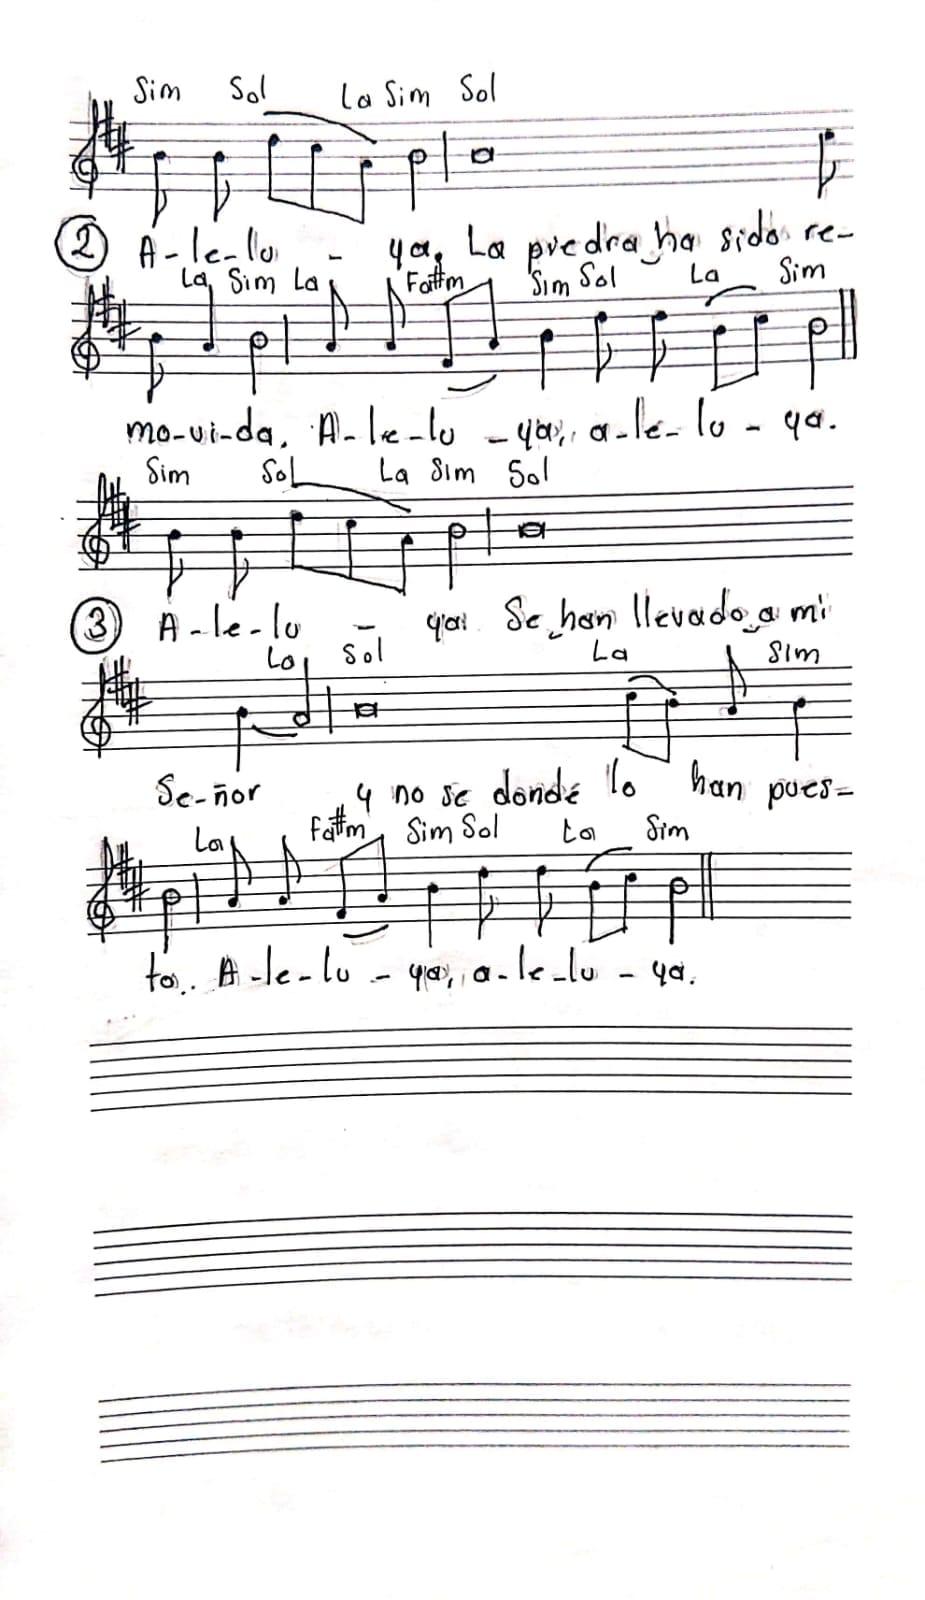 Sim Sol La Sim Sol
② A-le-lu - ya. La piedra ha sido re-
La Sim La Fa#m Sim Sol La Sim
mo-vi-da. A-le-lu - ya, a-le-lu - ya.
Sim Sol La Sim Sol
③ A-le-lu - ya. Se han llevado a mi
La Sol La Sim
Se-ñor y no se donde lo han pues-
La Fa#m Sim Sol La Sim
to. A-le-lu - ya, a-le-lu - ya.